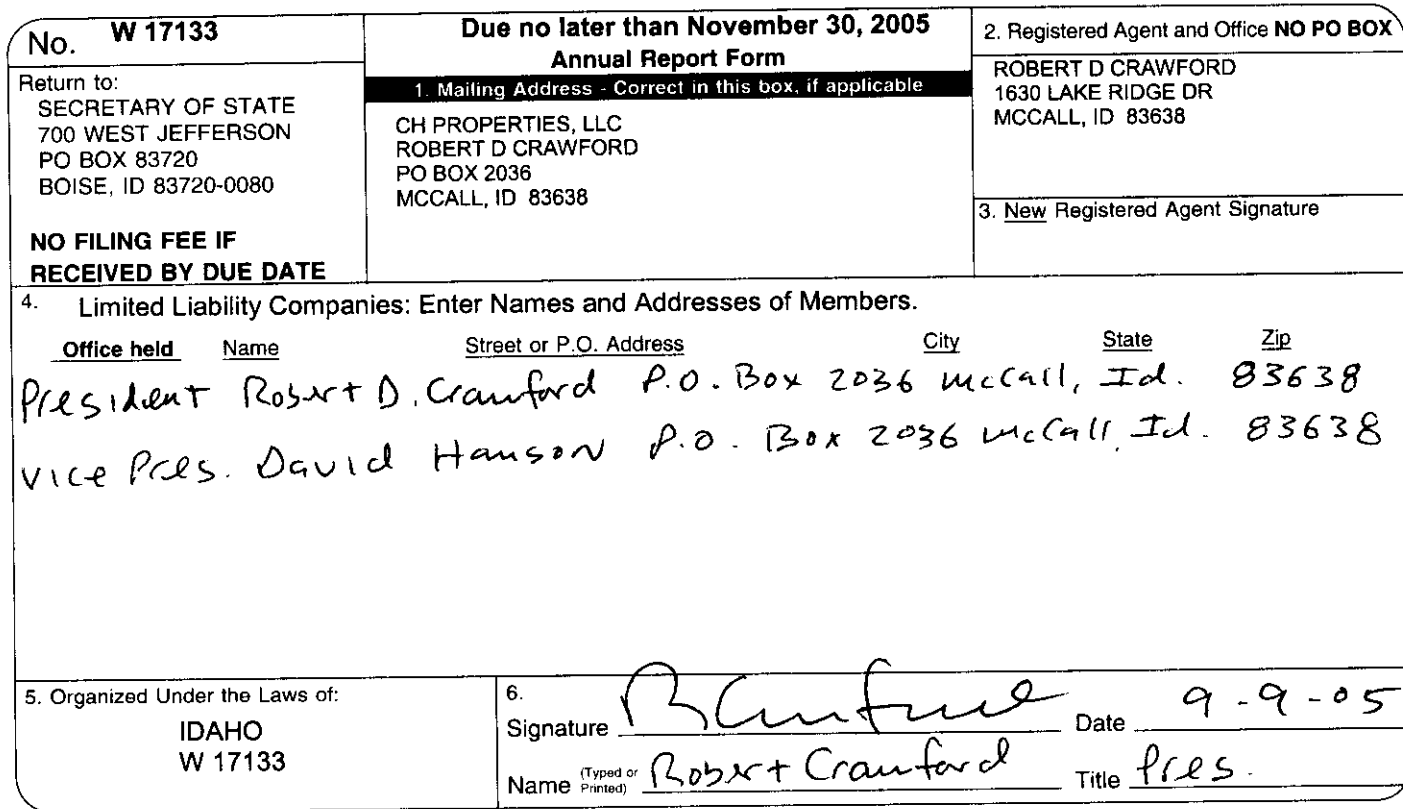 No. W 17133
Return to:
SECRETARY OF STATE
700 WEST JEFFERSON
PO BOX 83720
BOISE, ID 83720-0080
NO FILING FEE IF
RECEIVED BY DUE DATE
Due no later than November 30, 2005
Annual Report Form
1. Mailing Address - Correct in this box, if applicable
CH PROPERTIES, LLC
ROBERT D CRAWFORD
PO BOX 2036
MCCALL, ID 83638
2. Registered Agent and Office NO PO BOX
ROBERT D CRAWFORD
1630 LAKE RIDGE DR
MCCALL, ID 83638
3. New Registered Agent Signature
4. Limited Liability Companies: Enter Names and Addresses of Members.
Office held Name Street or P.O. Address City State Zip
President Robert D. Crawford P.O. Box 2036 McCall, Id. 83638
Vice Pres. David Hanson P.O. Box 2036 McCall, Id. 83638
5. Organized Under the Laws of:
IDAHO
W 17133
6.
Signature RCrawford Date 9-9-05
Name (Typed or Printed) Robert Crawford Title Pres.